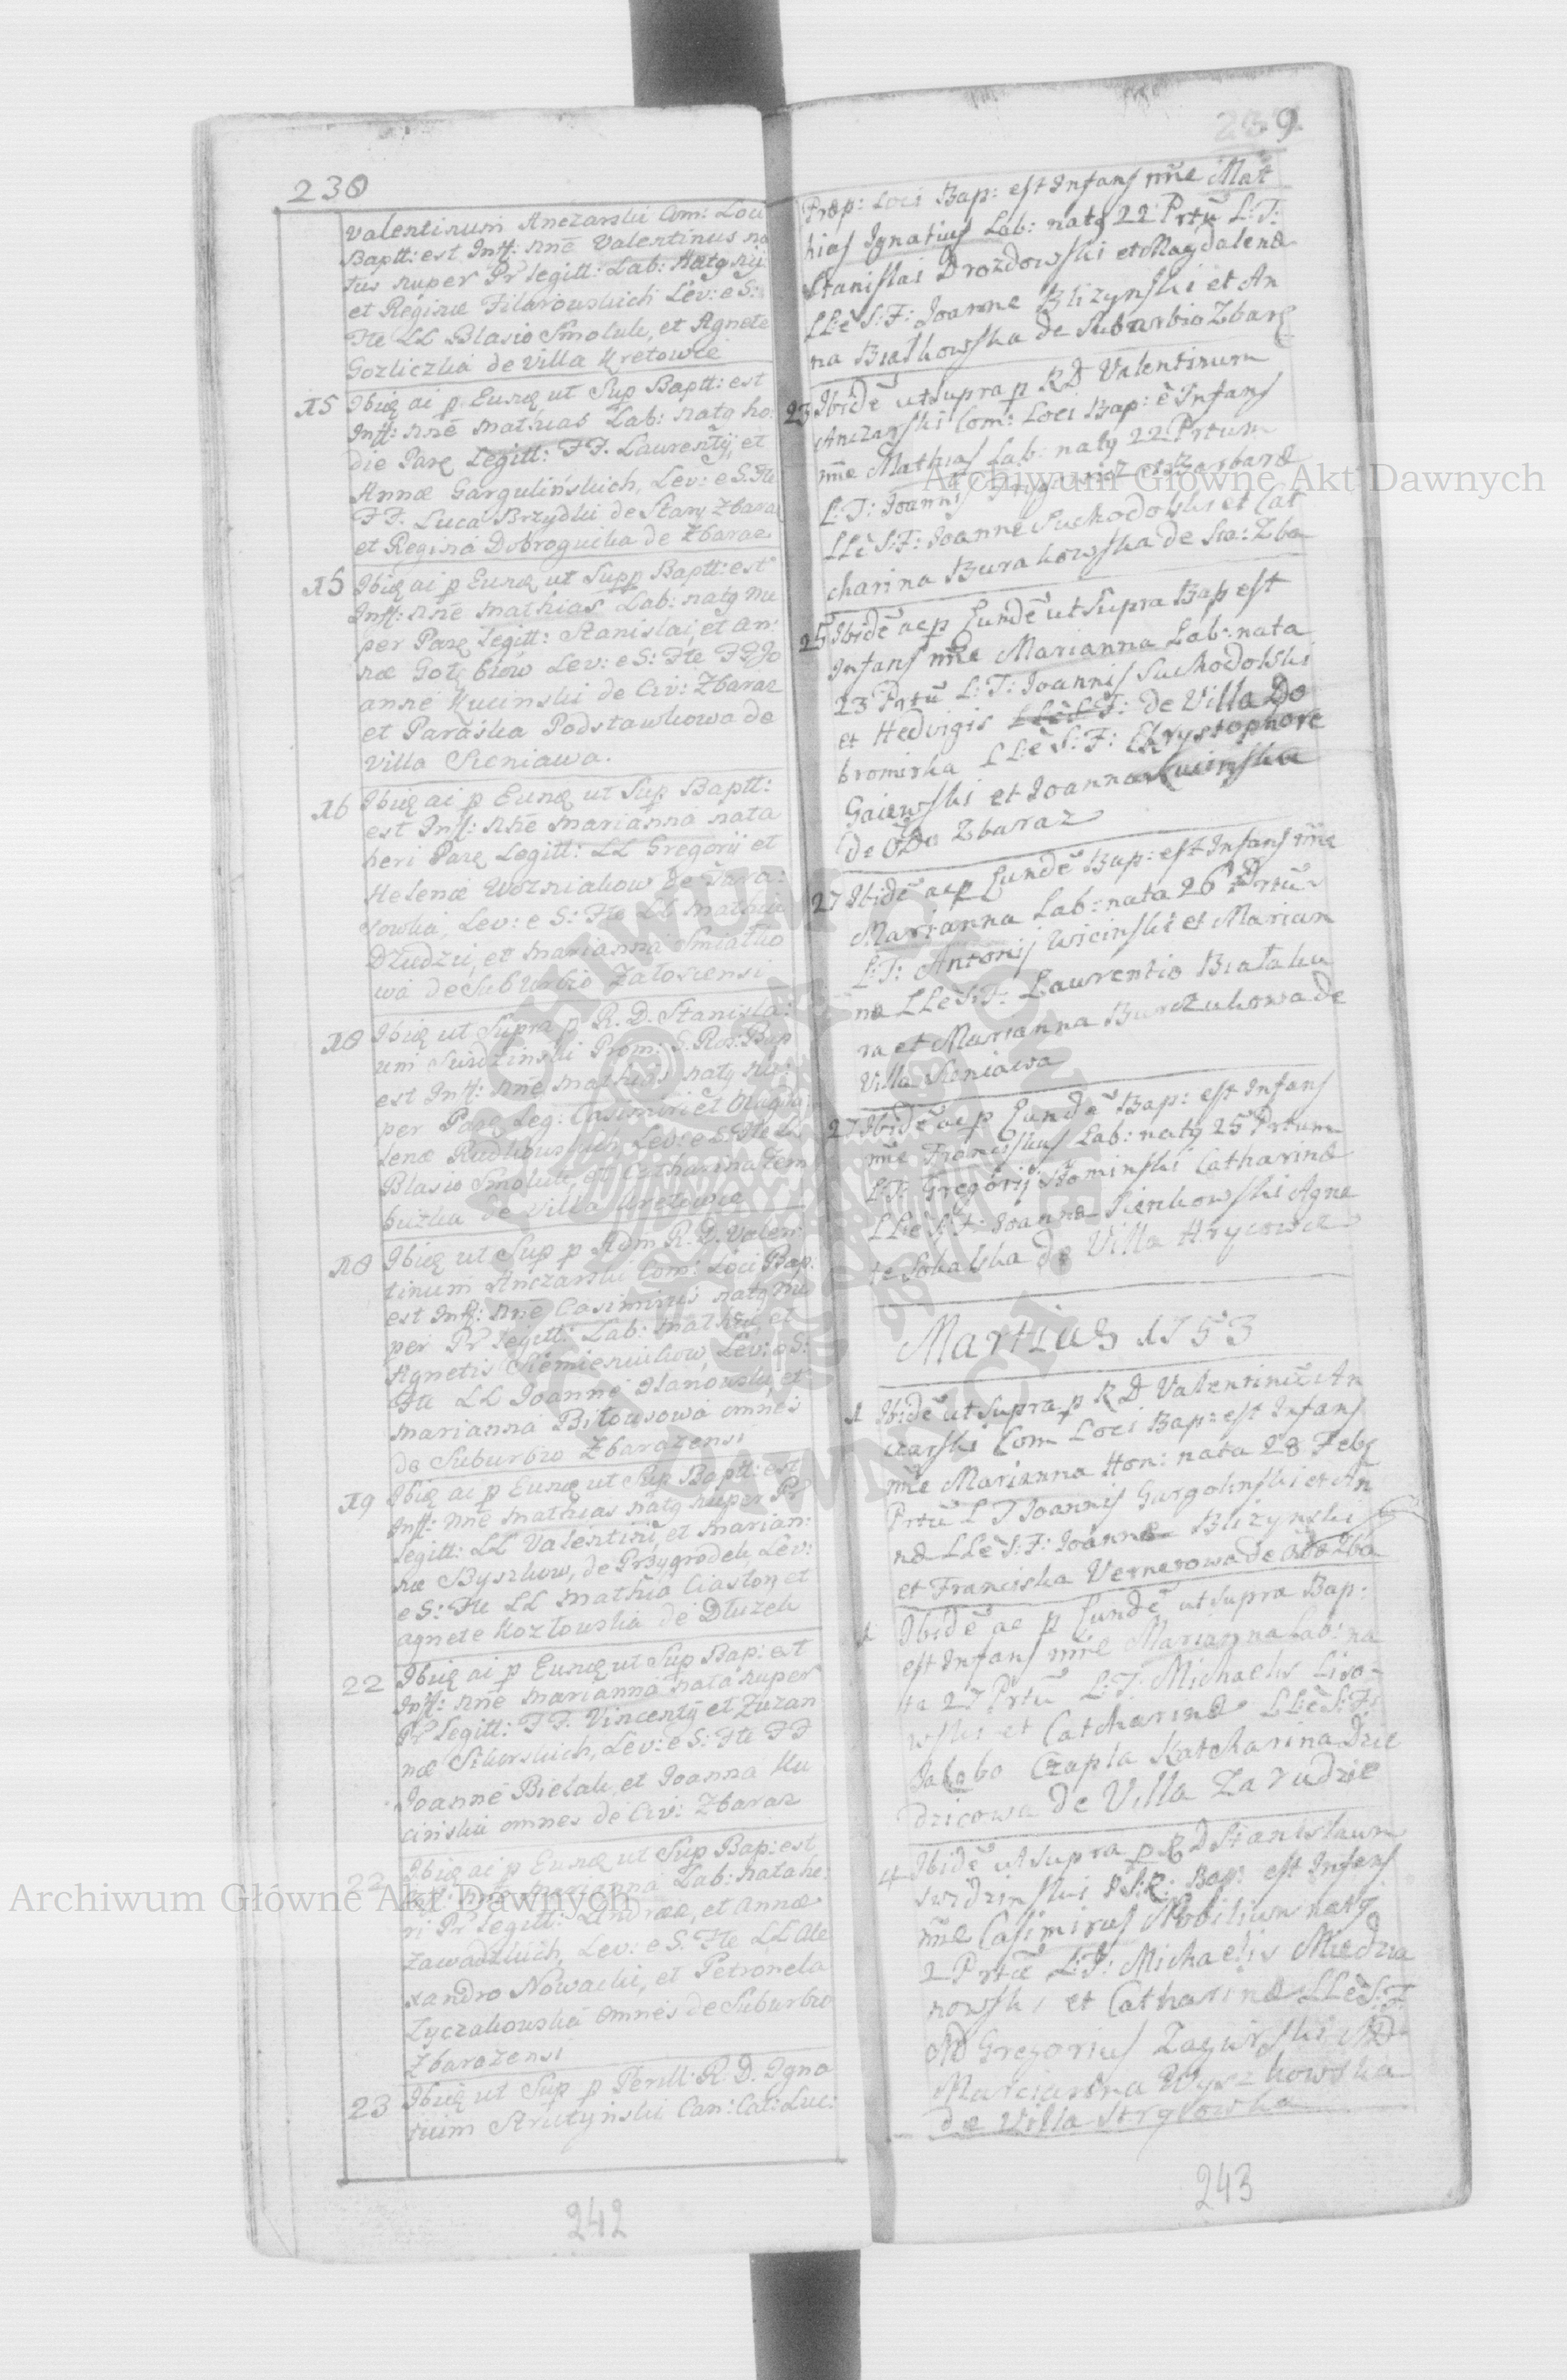 238
Valentinum Anczarski Com: Loci
Baptt: est Inff: nne Valentinus na
tus nuper Pr legitt: Lab:
et Reginæ Filarowskich Lev: e S:
Fte LL Blasio Smoluk, et Agnete
Gozliczka de Villa Kretowce
15 Ibiq ai p Eunq ut Sup Baptt: est
Inff: nne Mathias Lab: natq ho:
die Parq Legitt: FF. Laurentij, et
Annæ Gargulińskich, Lev: e S. Fte
FF. Luca Brzydki de Stary Zbaraz
et Regina Dobrogucka de Zbaraz
15 Ibiq ai p Eunq ut Supp Baptt: est
Inff: nne Mathias Lab: natq nu
per Parq legitt: Stanislai, et An:
næ Gołębiow Lev: e S: Fte FF Jo
anne Kucinski de Civ: Zbaraz
et Paraska Podstawkowa de
Villa Sieniawa.
16 Ibiq ai p Eunq ut Sup Baptt:
est Inff: nne Marianna nata
heri Parq Legitt: LL Gregorij et
Helenæ Wozniakow de Tara:
sowka, Lev: e S: Fte LL
Dłudzii, et Marianna Smiałko
wa de Suburbio Załoscensi
18 Ibiq ut Supra p R. D. Stanisla:
um Swidzinski Prom: S. Ros: Bap
est Inff: nne Mathias natq nu:
per Parq Leg: Casimiri et Magda
lenæ Rudkowskich Lev: e S: Fte LL
Blasio Smoluk, et Catharina Dem
buzka de Villa Kretowce
18 Ibiq ut Sup p Adm R. D. Valen
tinum Anczarski Com: Loci Bap:
est Inff: nne Casimirus natq nu
per Pr legitt: Lab: Mathiæ et
Agnetis Siemienuikow, Lev: e S:
Fte LL Joanne Ilanowski, et
Marianna Bitousowa omnes
de Suburbio Zbarazensi
19 Ibiq ai p Eunq ut Sup Baptt: est
Inff: nne Mathias natq nuper Pr
legitt: LL Valentini, et Marian:
næ Byszkow, de Przygrodek, Lev:
e S: Fte LL Mathia Ciaston, et
Agnete Kozłowska de Dłuzek
22 Ibiq ai p Eunq ut Sup Bap: est
Inff: nne Marianna nata nuper
Pr Legitt: FF. Vincentij et Zuzan
næ Sikorskich, Lev: e S: Fte FF
Joanne Bielak, et Joanna Ku
cińska omnes de Civ: Zbaraz
22 Ibiq ai p Eunq ut Sup Bap: est
Inff: nne Marianna Lab: nata he:
ri Pr legitt: Andreæ, et Annæ
Zawadzkich, Lev: e S. Fte LL Ale
xandro Nowacki, et Petronela
Zyczakowska omnes de Suburbio
Zbarazensi
23 Ibiq ut Sup p Perill: R. D. Igna
tium Strutyński Can: Cat: Luc:
242
239
Præp: Loci Bap: est Infans nne Mat
hias Ignatius Lab: natq 22 Prtu L: T:
Stanislai Drozdowski et Magdalenæ
LLe S: F: Joanne Blizynski et An
na Białkowska de Suburbio Zbarę
23 Ibide ut Supra p RD Valentinum
Anczarski Com: Loci Bap: e Infans
nne Mathias Lab: natq 22 Prtum
L: T: Joannis et Barbaræ
LLe S: F: Joanne Suchodolski et Cat
charina Burakowska de Sta: Zba
25 Ibide ac p Eunde ut Supra Bap est
Infans nne Marianna Lab: nata
23 Prtu L: T: Joannis Suchodolski
et Hedvigis LLe S F: de Villa Do
bromirka LLe S: F: Chrystophore
Gaiewski et Joanna Kucinska
de Zbaraz
27 Ibide ac p Eunde Bap: est Infans nne
Marianna Lab: nata 26 Prtu
L: T: Antonij Wicinski et Marian
na LLe S: F: Laurentio Białaku
ra et Marianna Burczukowa de
Villa Sieniawa
27 Ibide ac p Eunde Bap: est Infans
nne Franciskus Lab: natq 25 Prtum
L: T: Gregorij Słominski Catharinæ
LLe S: F: Joanne Sienkowski Agne
te Sokalska de Villa Hrycowce
Martius 1753
1 Ibide ut Supra p RD Valentinu An
czarski Com Loci Bap: est Infans
nne Marianna Hon: nata 28 Febq
Prtu L T Joannis Gargolinski et An
næ LLe S: F: Joanne Blizynski
et Franciska Vernerowa de Zba
1 Ibide ac p Eunde ut Supra Bap:
est Infans nne Marianna Lab: na
ta 27 Prtu L: T: Michaelis Liso-
wski et Catcharinæ LLe S: F:
Jakobo Czapla Katcharina Dzie
dzicowa de Villa Zarudzie
4 Ibide ut Supra p RD Stanislaum
Swidzinski P S: R: Bap: est Infans
nne Casimirus Nobilium natq
2 Prtu L: T: Michaelis Miedzia
nowski et Catharinæ LLe S: F
MD Gregorius Zagurski MD
Marcianna Wyszkowska
de Villa Stryiowka
243
Archiwum Główne Akt Dawnych
Archiwum Główne Akt Dawnych
ARCHIWUM GŁÓWNE AKT DAWNYCH